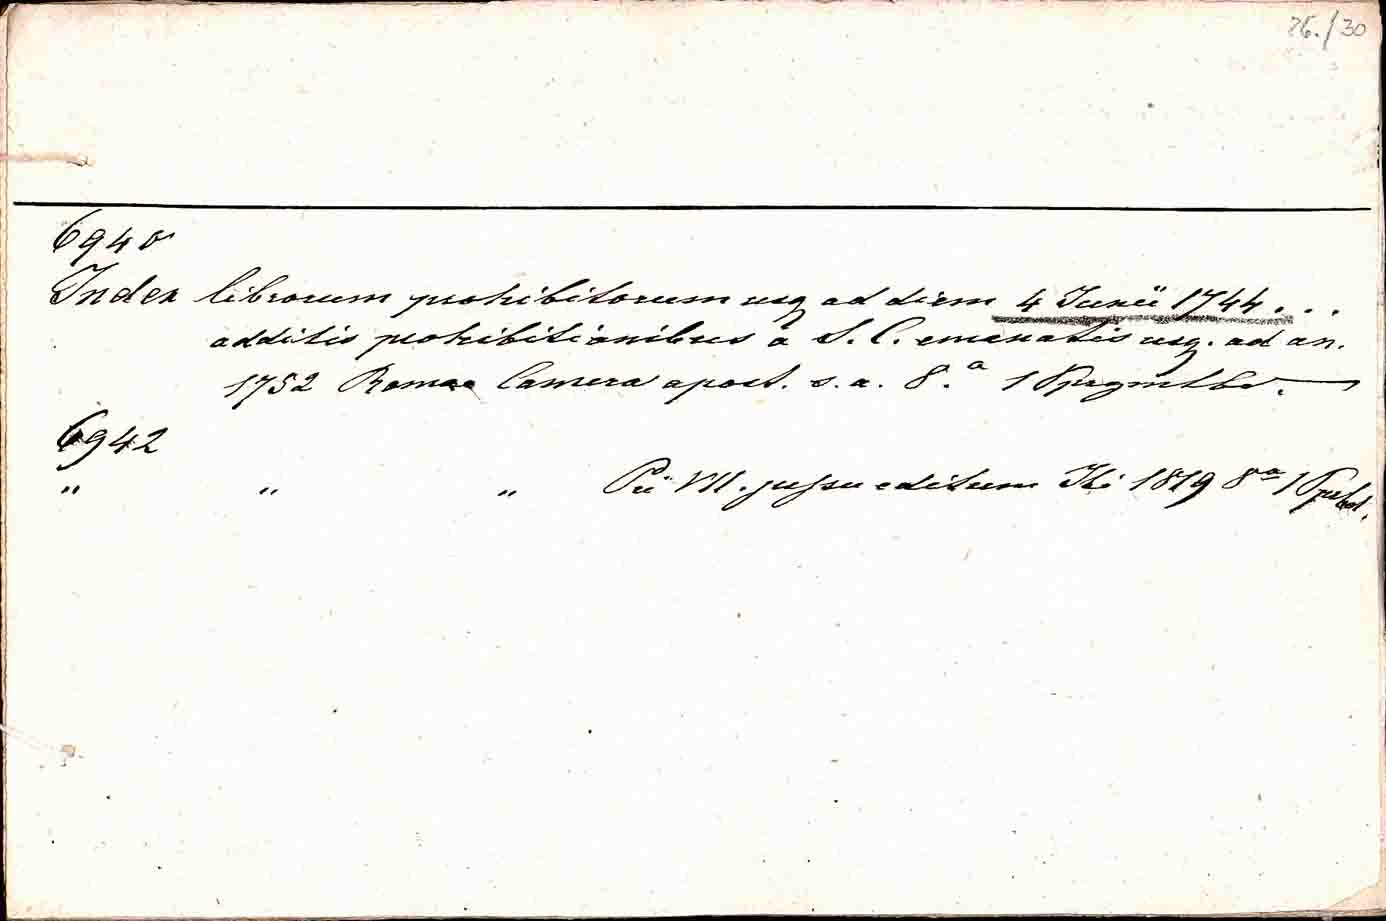 26./30
6940
Index librorum prohibitorum usq ad diem 4 Junii 1744...
additis prohibitionibus a S. C. emanatis usq. ad an.
1752 Romae Camera apost. s. a. 8.a 1
6942
" " " Pii VII. jussu editum 1819 8a 1